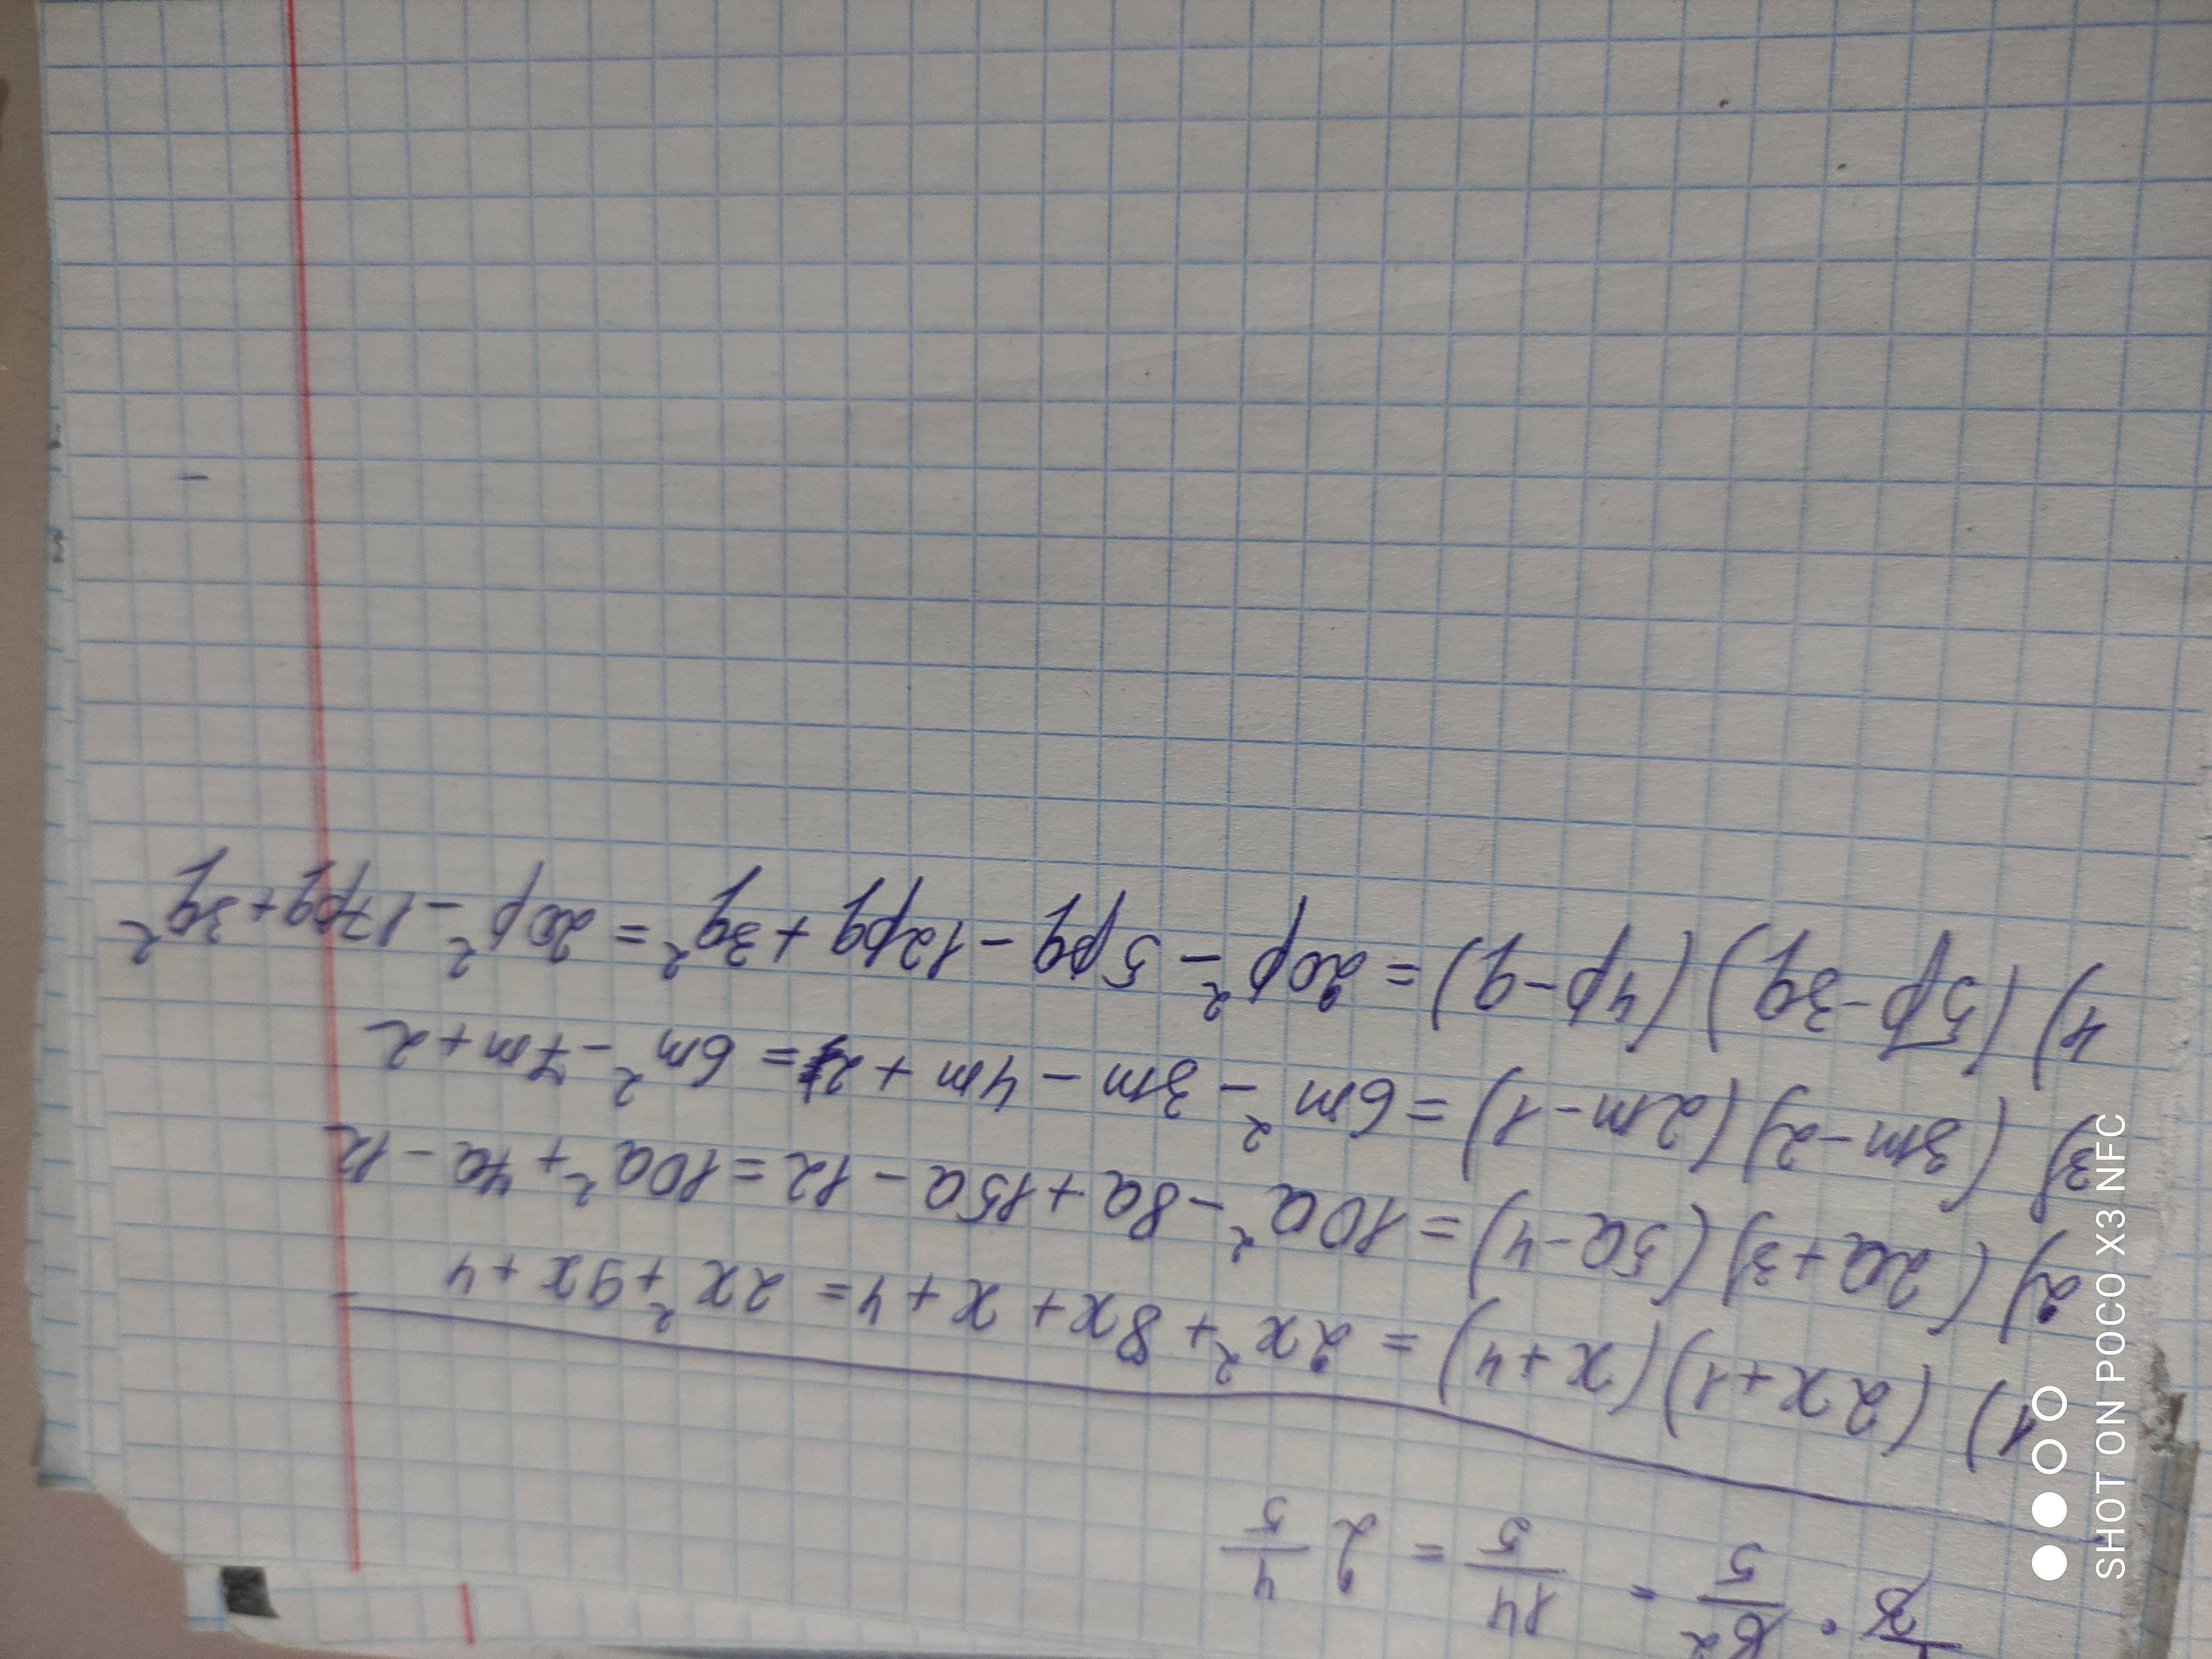 7/3 · 6 2/5 = 14/5 = 2 4/5
1) (2x+1)(x+4) = 2x² + 8x + x + 4 = 2x² + 9x + 4
2) (2a+3)(5a-4) = 10a² - 8a + 15a - 12 = 10a² + 7a - 12
3) (3m-2)(2m-1) = 6m² - 3m - 4m + 2 = 6m² - 7m + 2
4) (5p-3q)(4p-q) = 20p² - 5pq - 12pq + 3q² = 20p² - 17pq + 3q²
SHOT ON POCO X3 NFC